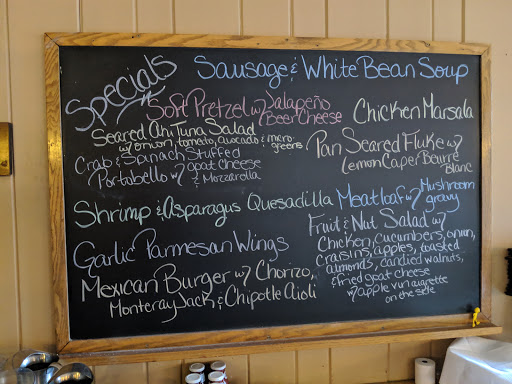 Specials
Sausage & White Bean Soup
Soft Pretzel w/ Jalapeño
Beer Cheese
Chicken Marsala
Seared Ahi Tuna Salad
w/ onion, tomato, avocado & micro-
greens
Pan Seared Fluke w/
Lemon Caper Beurre
Blanc
Crab & Spinach Stuffed
Portabello w/ goat cheese
& Mozzarolla
Shrimp & Asparagus Quesadilla
Meatloaf w/ Mushroom
gravy
Garlic Parmesan Wings
Fruit & Nut Salad w/
Chicken, cucumbers, onion,
craisins, apples, toasted
almonds, candied walnuts,
& fried goat cheese
w/ apple vinaigrette
on the side
Mexican Burger w/ Chorizo,
Monteray Jack, & Chipotle Aioli